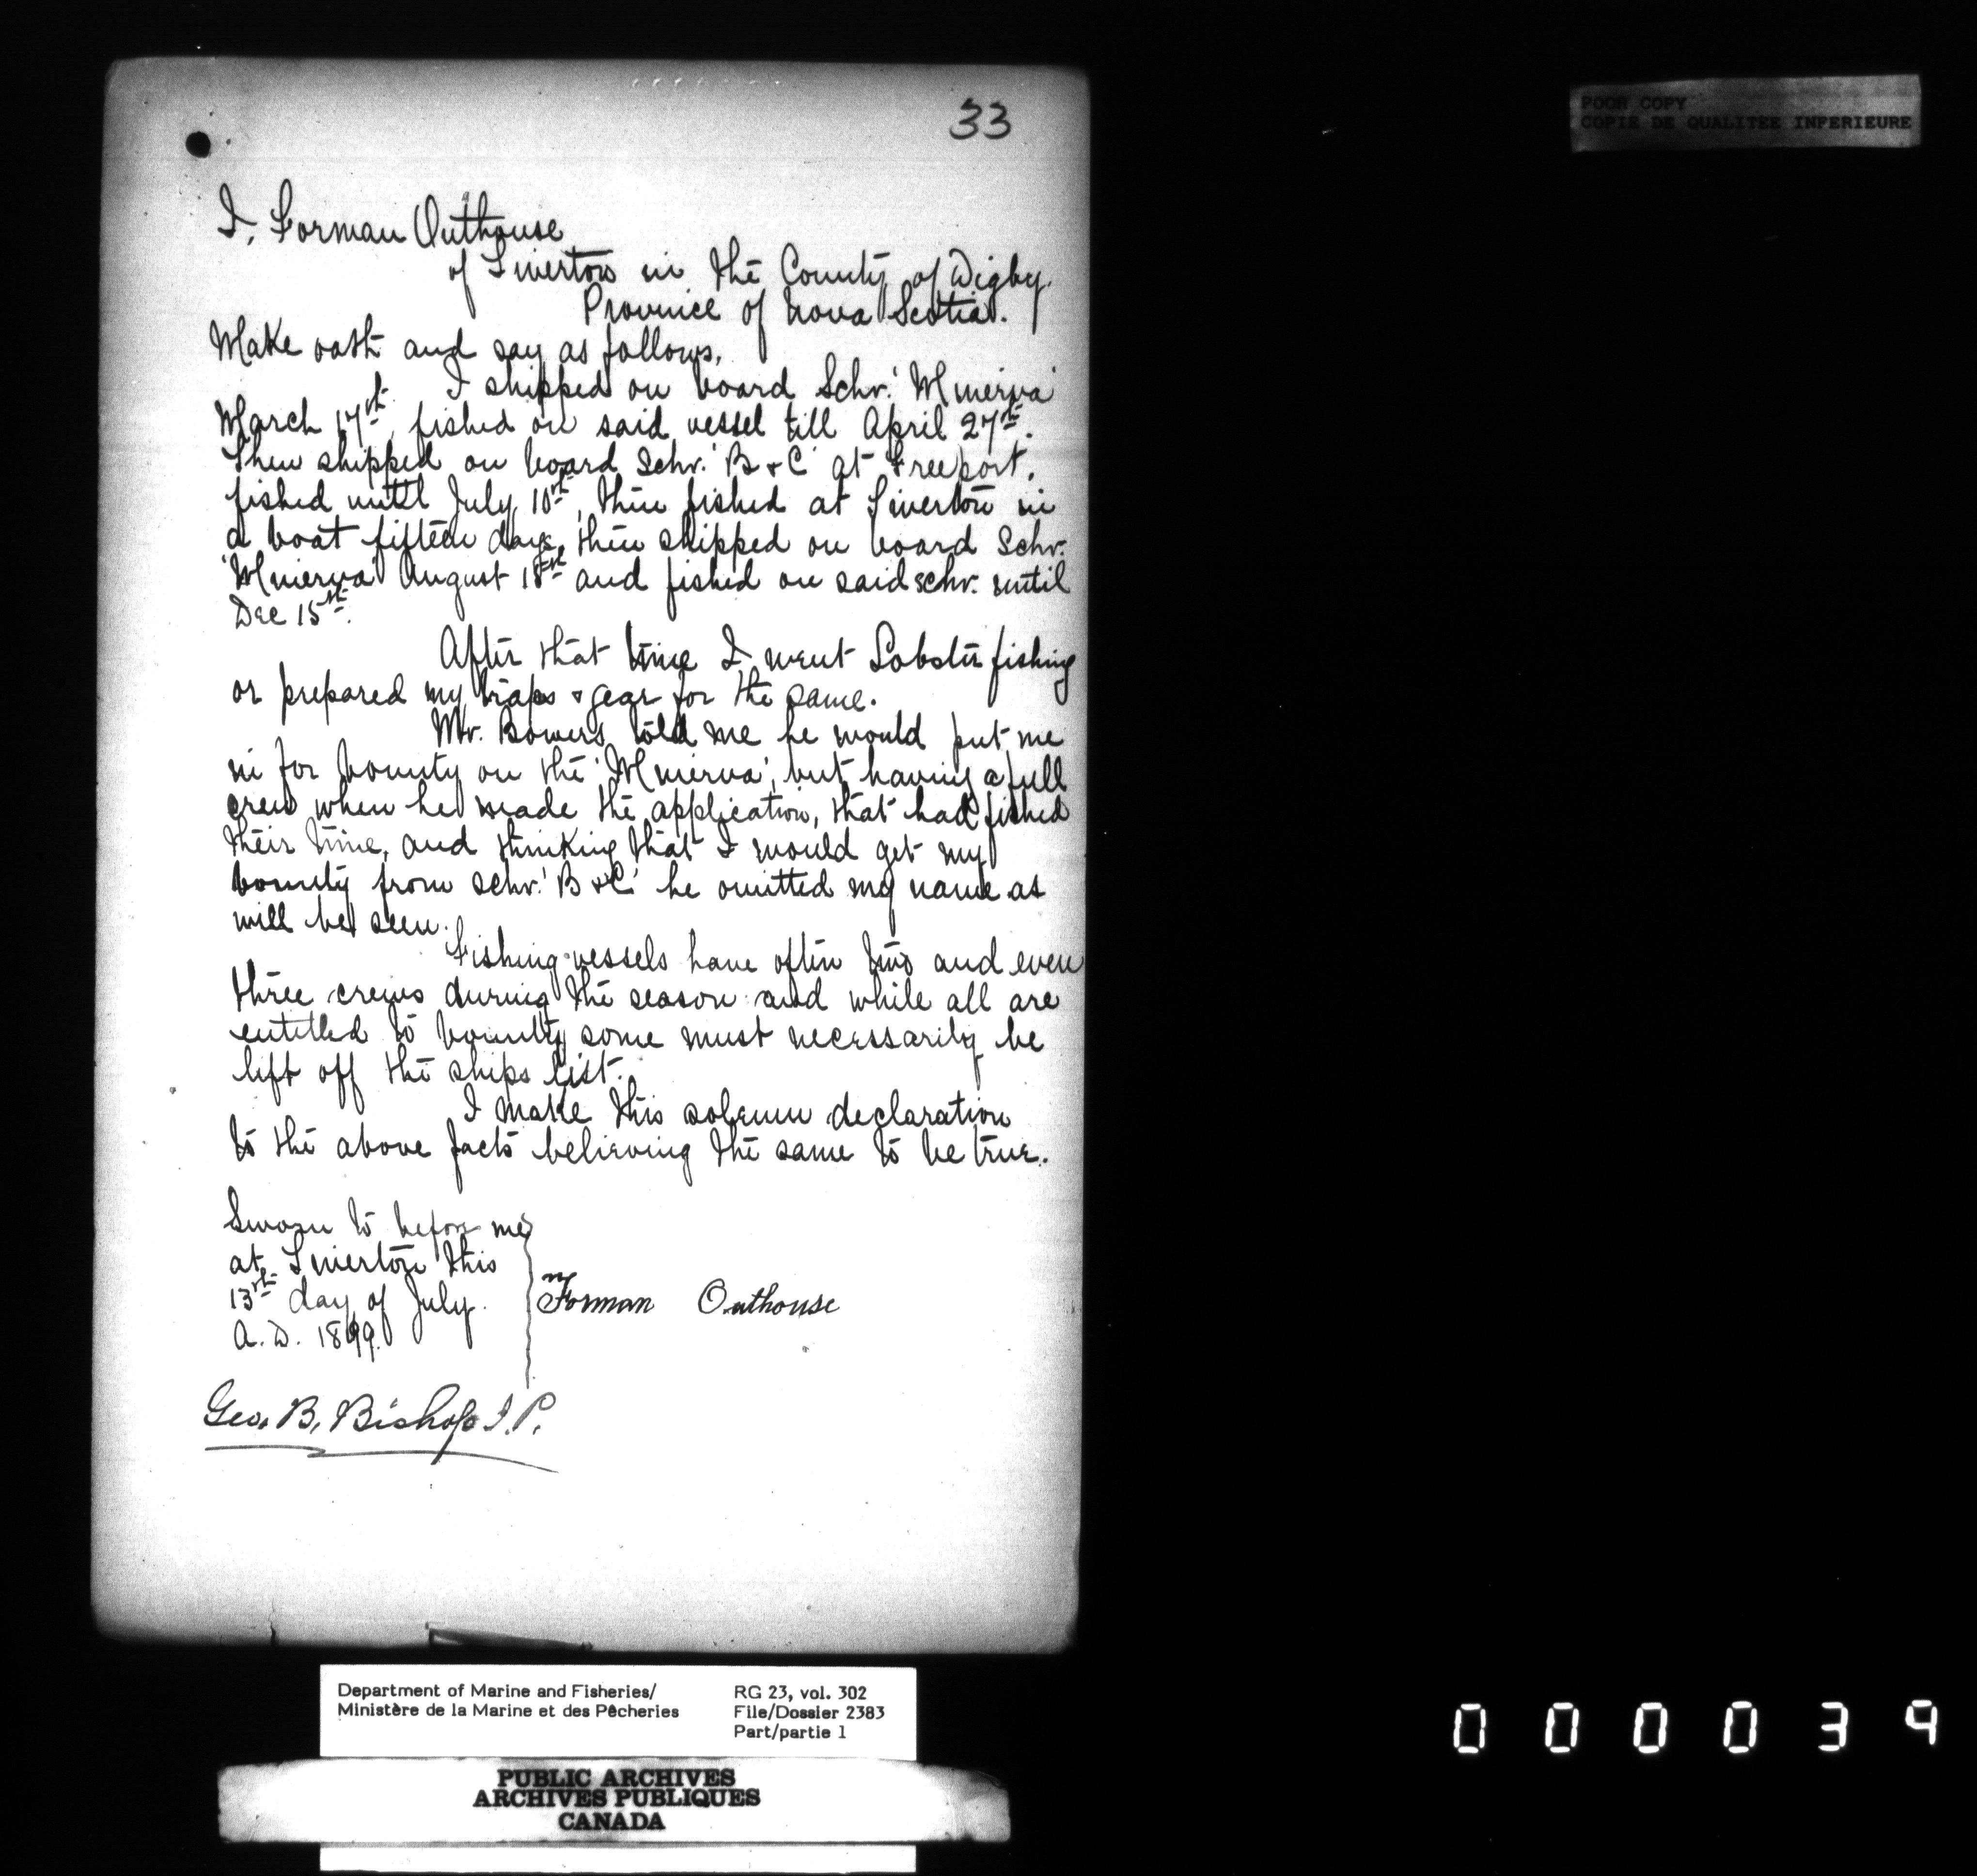 33
POOR COPY
COPIE DE QUALITEE INFERIEURE
I, Forman Outhouse
of Tiverton in the County of Digby.
Province of Nova Scotia.
Make oath and say as follows.
I shipped on board Schr. 'Minerva'
March 17th, fished on said vessel till April 27th.
Then shipped on board Schr. 'B & C' at Freeport,
fished until July 10th, then fished at Tiverton in
a boat fifteen days, then shipped on board Schr.
'Minerva' August 18th and fished on said schr. until
Dec 15th.
After that time I went Lobster fishing
or prepared my traps & gear for the same.
Mr. Bowers told me he would put me
in for bounty on the 'Minerva', but having a full
crew when he made the application, that had fished
their time, and thinking that I would get my
bounty from schr. 'B & C' he omitted my name as
will be seen.
Fishing vessels have often two and even
three crews during the season and while all are
entitled to bounty some must necessarily be
left off the ships list.
I make this solemn declaration
to the above facts believing the same to be true.
Sworn to before me
at Tiverton this
13th day of July.
A.D. 1899.
Forman Outhouse
Geo. B. Bishop J.P.
Department of Marine and Fisheries/
Ministère de la Marine et des Pêcheries
RG 23, vol. 302
File/Dossier 2383
Part/partie 1
PUBLIC ARCHIVES
ARCHIVES PUBLIQUES
CANADA
000039